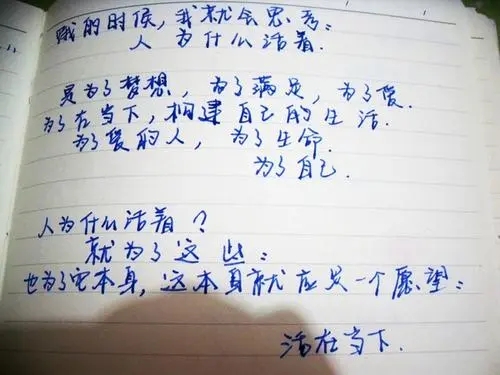 饿的时候，我就会思考：
人为什么活着.
是为了梦想，为了满足，为了爱.
为了在当下，构建自己的生活.
为了爱的人，为了生命.
为了自己.
人为什么活着？
就为了这些：
也为了它本身，这本身就应是一个愿望：
活在当下.